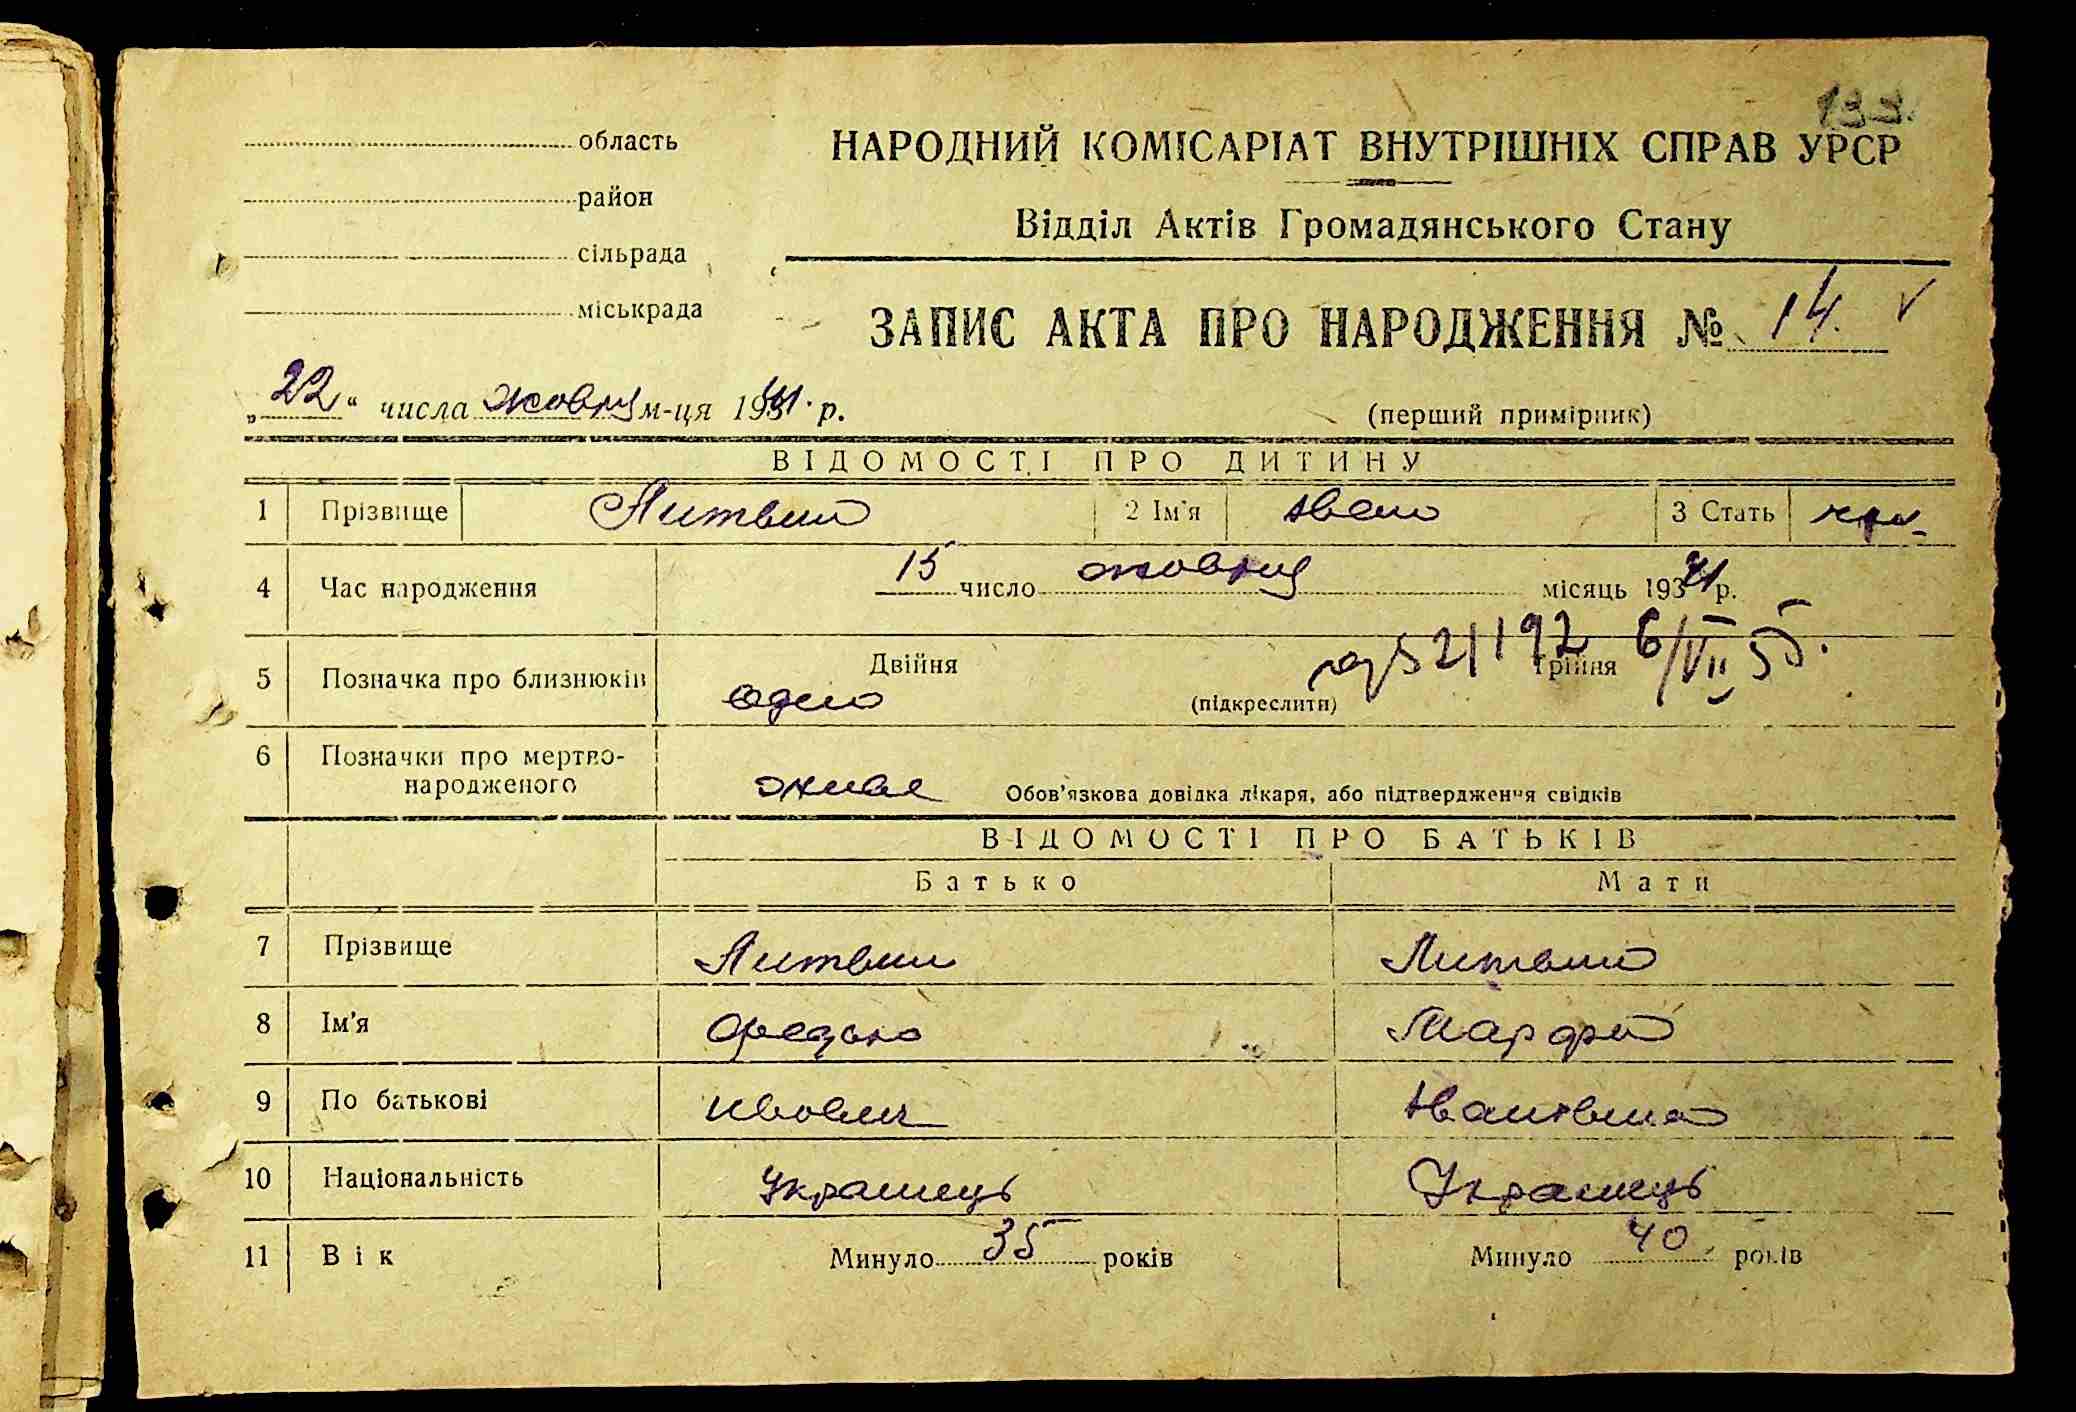 133.
область
НАРОДНИЙ КОМІСАРІАТ ВНУТРІШНІХ СПРАВ УРСР
район
Відділ Актів Громадянського Стану
сільрада
міськрада
ЗАПИС АКТА ПРО НАРОДЖЕННЯ № 14. V
„22“ числа жовтня м-ця 1941. р.
(перший примірник)
ВІДОМОСТІ ПРО ДИТИНУ
1 Прізвище Литвин 2 Ім'я Иван 3 Стать
4 Час народження 15 число жовтня місяць 1941 р.
5 Позначка про близнюків Двійня Трійня
одно (підкреслити) 52/192 6/VII 55.
6 Позначки про мертво-
народженого живе Обов'язкова довідка лікаря, або підтвердження свідків
ВІДОМОСТІ ПРО БАТЬКІВ
Батько Мати
7 Прізвище Литвин Литвин
8 Ім'я Федько Марфа
9 По батькові Ивович Ивановна
10 Національність Українець Українець
11 Вік Минуло 35 років Минуло 40 років